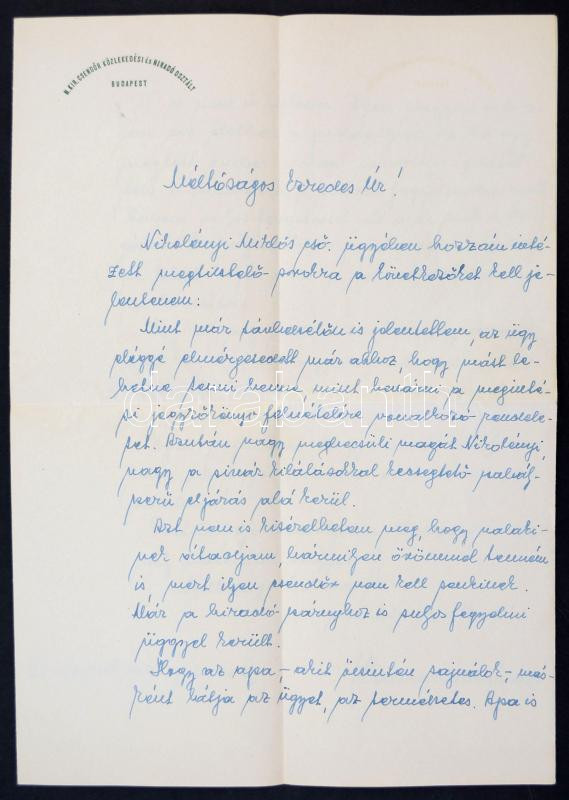 M. KIR. CSENDŐR KÖZLEKEDÉSI ÉS HIRADÓ OSZTÁLY
BUDAPEST
Méltóságos Ezredes Úr!
Nikolényi Miklós cső. ügyében hozzám inté-
zett megtisztelő sorokra a következőket kell je-
lentenem:
Mint már távbeszélőn is jelentettem, az ügy
eléggé elmérgesedett már ahhoz, hogy mást le-
hetne tenni benne mint bevárni a megintés-
si jegyzőkönyv felvételére vonatkozó rendele-
tet. Azután vagy megbecsüli magát Nikolényi,
vagy a sivár kilátásokkal kecsegtető
eljárás alá kerül.
Azt nem is kisérelhetem meg, hogy valaki-
nek átadjam, bármilyen örömmel tenném
is, mert ilyen csendőr nem kell senkinek.
Már a hiradó szárnyhoz is súlyos fegyelmi
üggyel került.
Hogy az apa,- akit őszintén sajnálok,- más-
ként látja az ügyet, az természetes. Apa is
darabanth